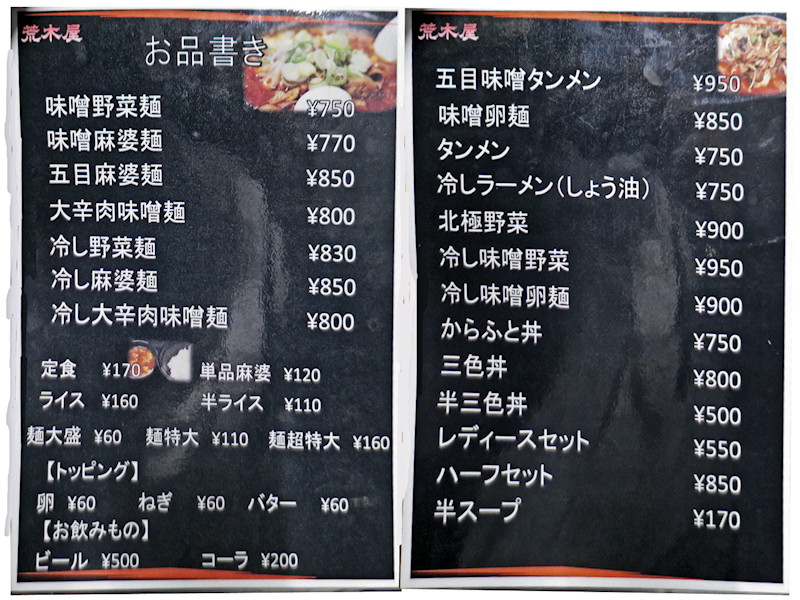 荒木屋
お品書き
味噌野菜麺 ¥750
味噌麻婆麺 ¥770
五目麻婆麺 ¥850
大辛肉味噌麺 ¥800
冷し野菜麺 ¥830
冷し麻婆麺 ¥850
冷し大辛肉味噌麺 ¥800
定食 ¥170 単品麻婆 ¥120
ライス ¥160 半ライス ¥110
麺大盛 ¥60 麺特大 ¥110 麺超特大 ¥160
【トッピング】
卵 ¥60 ねぎ ¥60 バター ¥60
【お飲みもの】
ビール ¥500 コーラ ¥200
荒木屋
五目味噌タンメン ¥950
味噌卵麺 ¥850
タンメン ¥750
冷しラーメン(しょう油) ¥750
北極野菜 ¥900
冷し味噌野菜 ¥950
冷し味噌卵麺 ¥900
からふと丼 ¥750
三色丼 ¥800
半三色丼 ¥500
レディースセット ¥550
ハーフセット ¥850
半スープ ¥170